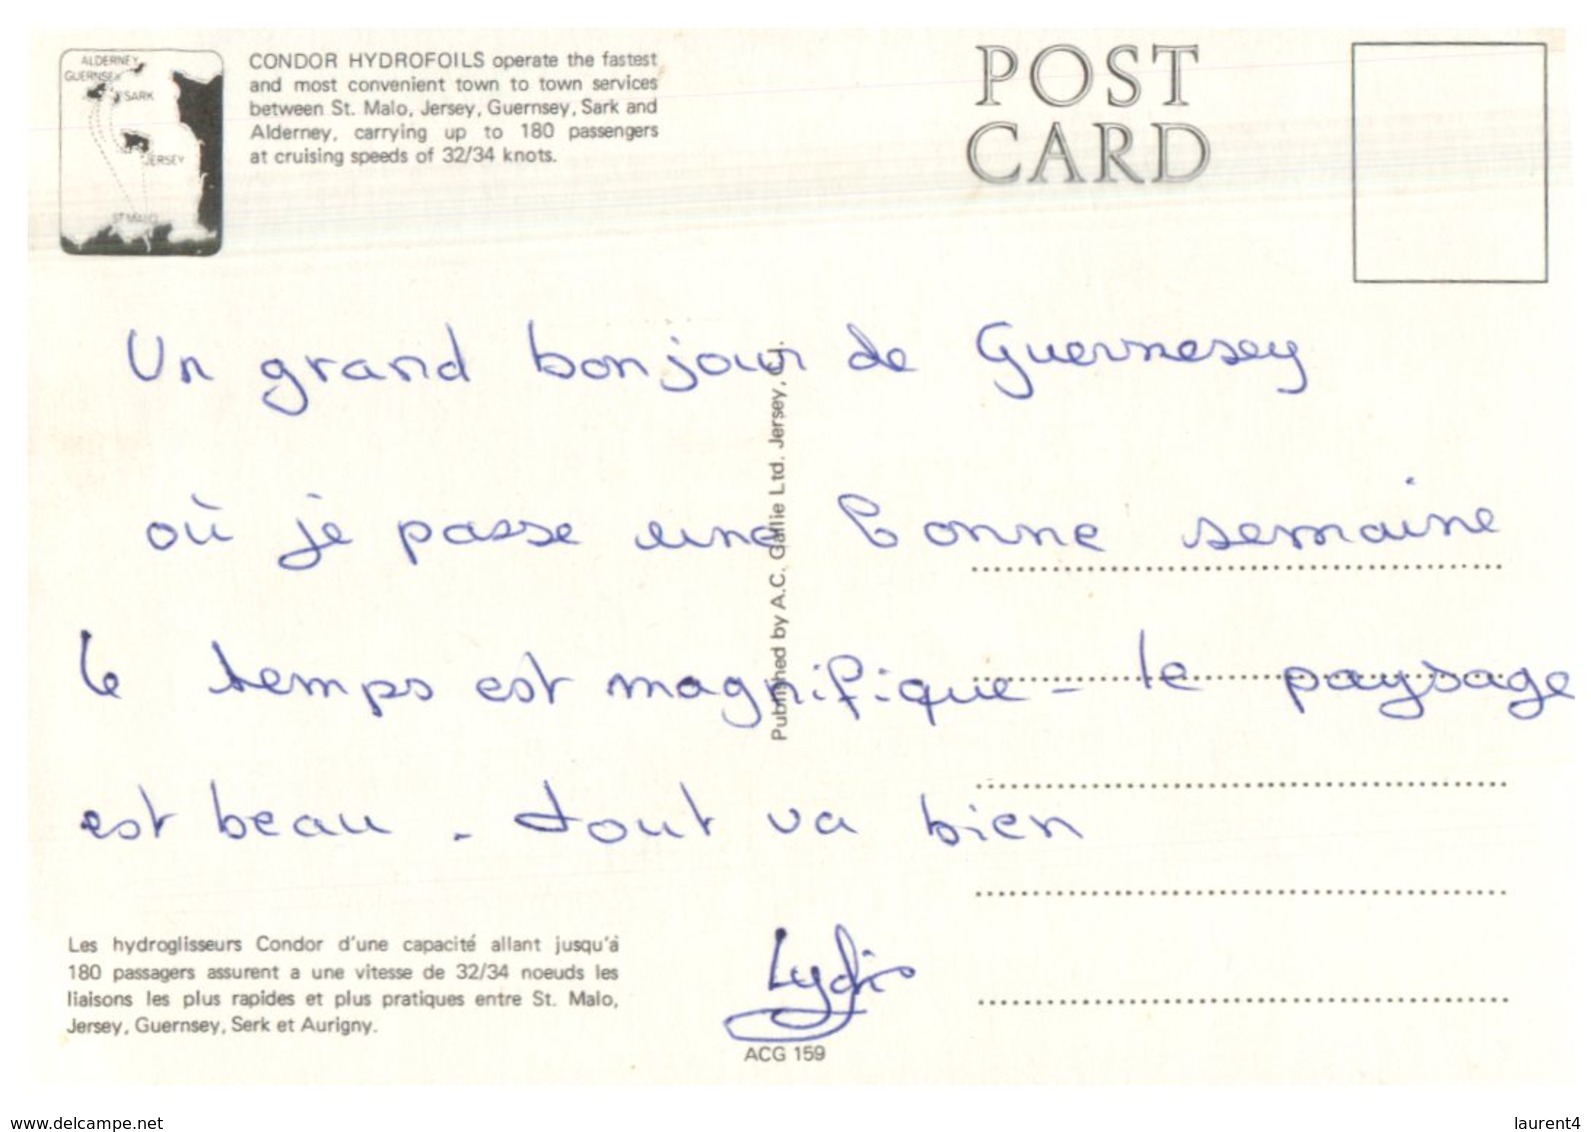 ALDERNEY
GUERNSEY
SARK
JERSEY
ST MALO
CONDOR HYDROFOILS operate the fastest
and most convenient town to town services
between St. Malo, Jersey, Guernsey, Sark and
Alderney, carrying up to 180 passengers
at cruising speeds of 32/34 knots.
POST
CARD
Un grand bonjour de Guernesey
où je passe une bonne semaine
le temps est magnifique - le paysage
est beau - tout va bien
Lydia
Published by A.C. Gallie Ltd. Jersey, C.I.
Les hydroglisseurs Condor d'une capacité allant jusqu'à
180 passagers assurent a une vitesse de 32/34 noeuds les
liaisons les plus rapides et plus pratiques entre St. Malo,
Jersey, Guernsey, Serk et Aurigny.
ACG 159
www.delcampe.net
laurent4